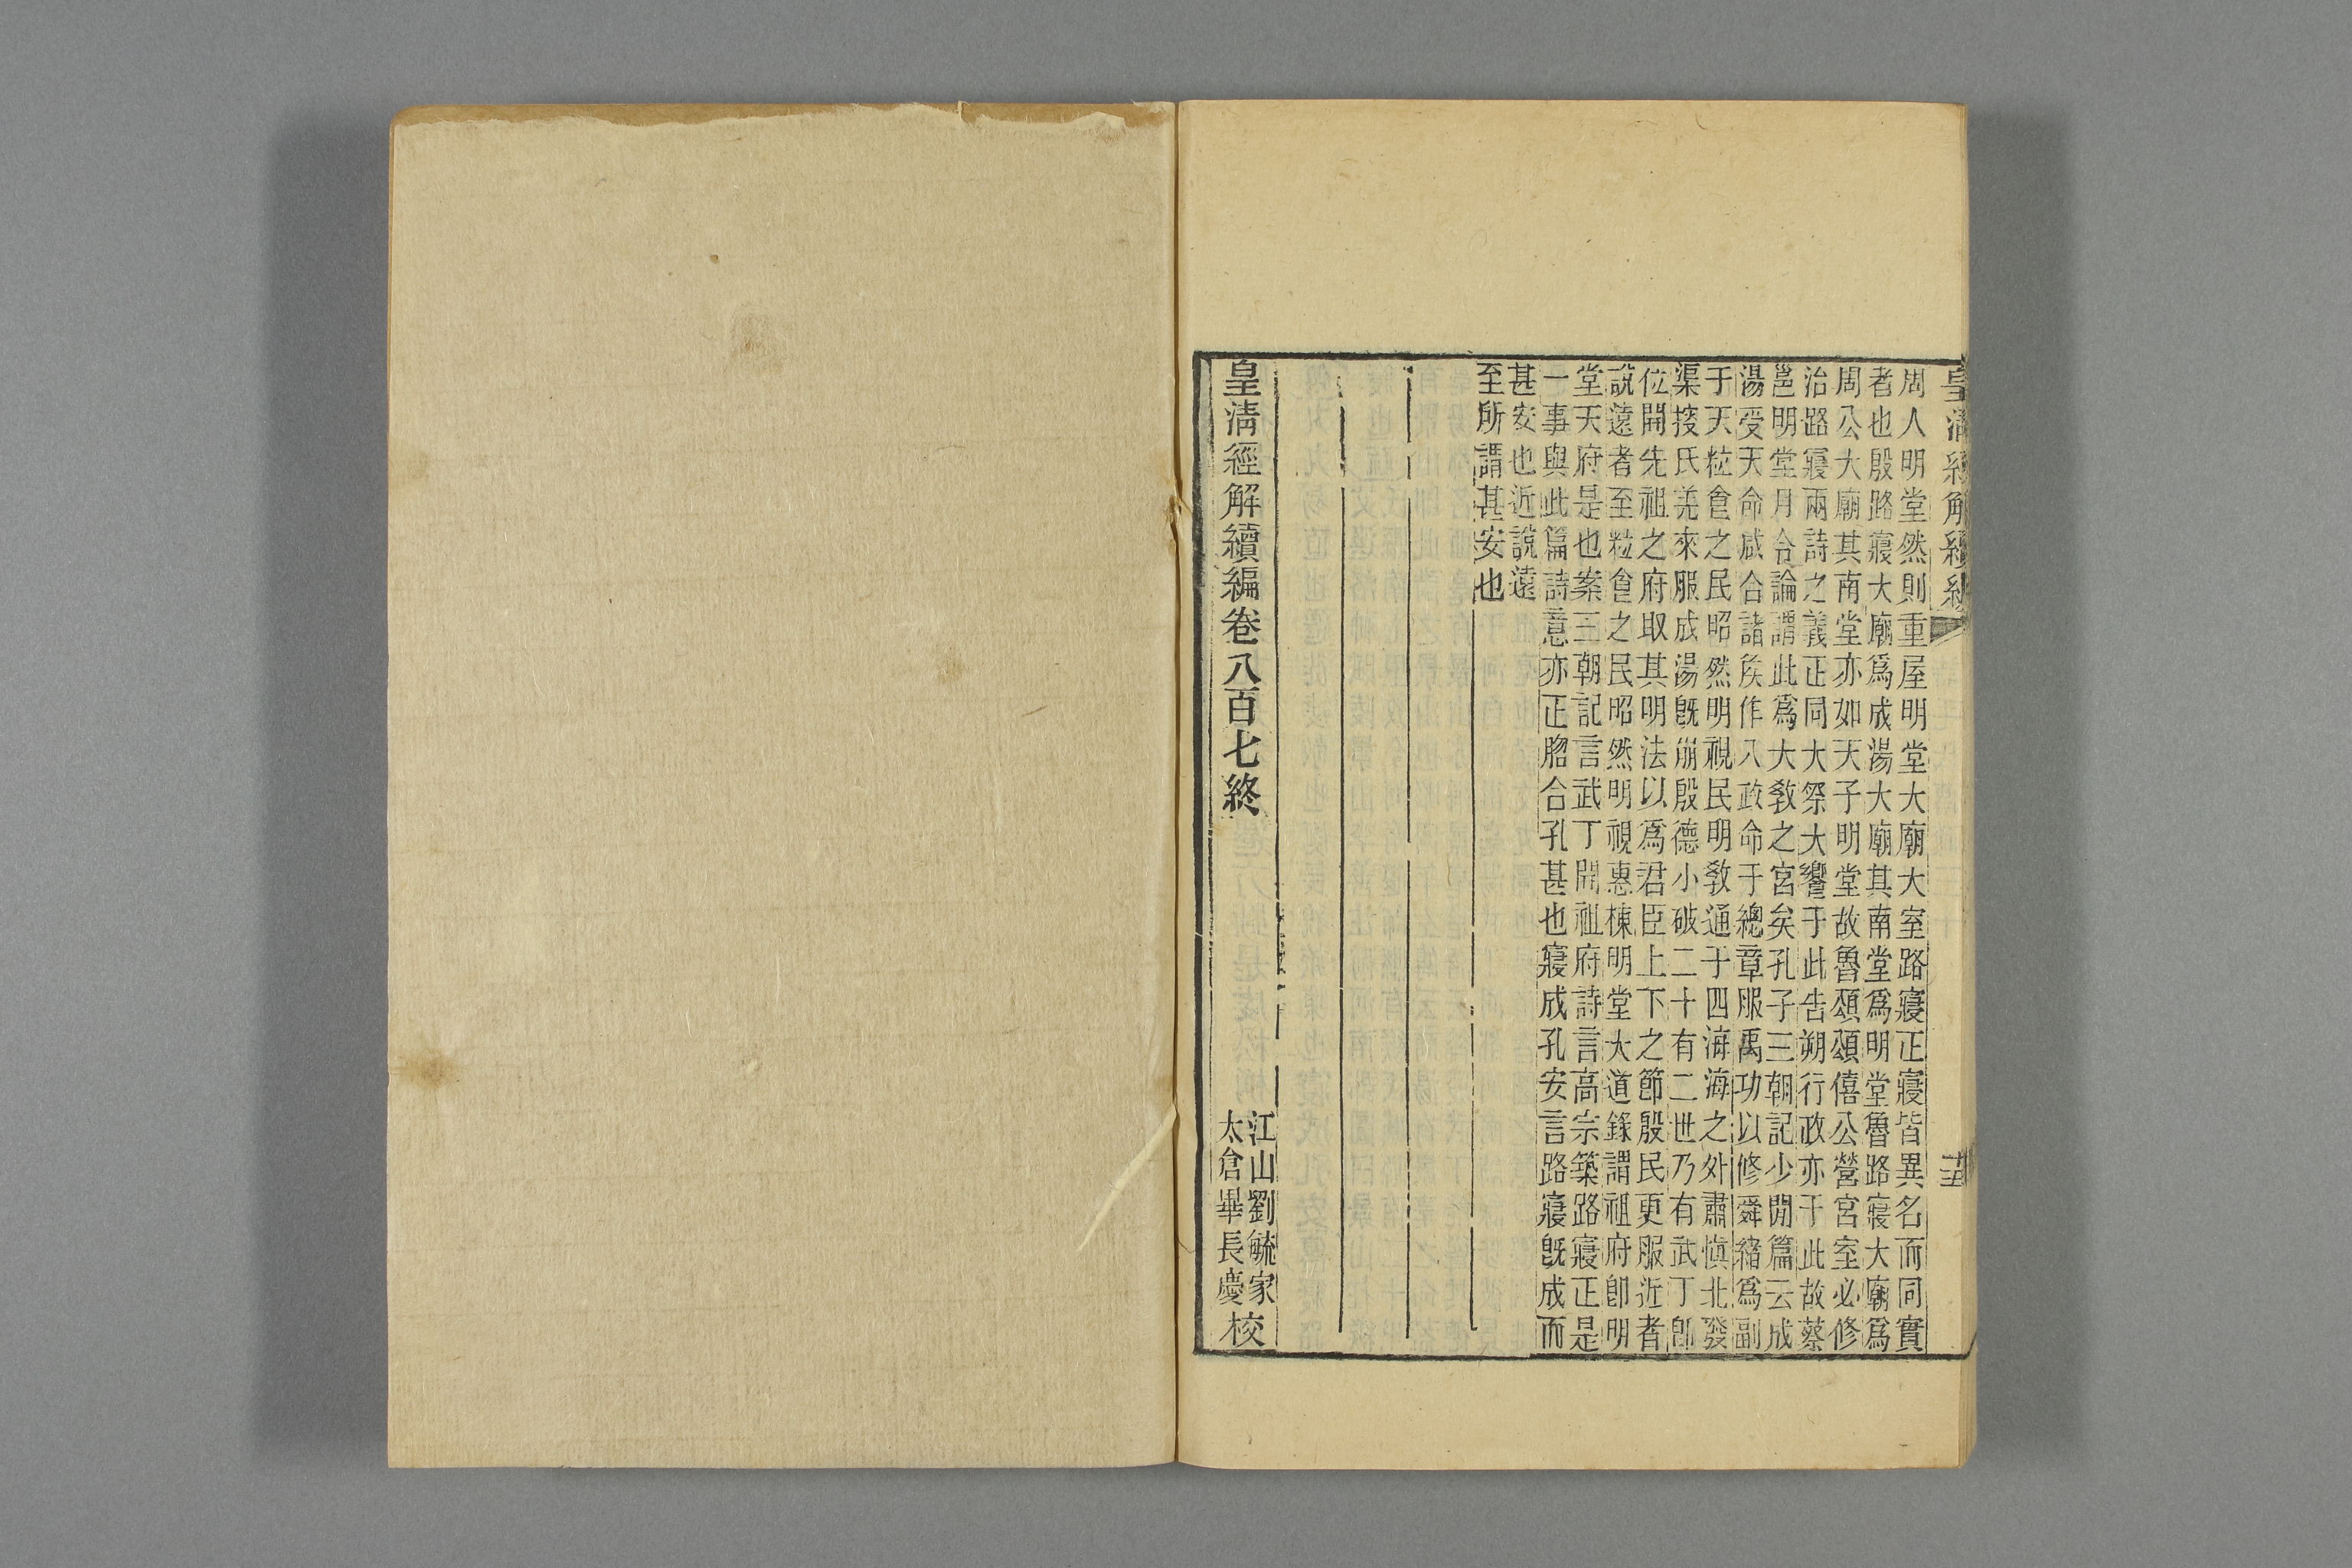 皇清經解續編
周人明堂然則重屋明堂大廟大室路寢正寢皆異名而同實
者也殷路寢大廟爲成湯大廟其南堂爲明堂魯路寢大廟爲
周公大廟其南堂亦如天子明堂故魯頌頌僖公營宮室必修
治路寢兩詩之義正同大祭大饗于此告朔行政亦于此故蔡
邕明堂月令論謂此爲大敎之宮矣孔子三朝記少閒篇云成
湯受天命咸合諸矦作八政命于總章服禹功以修舜緒爲副
于天粒食之民昭然明視民明敎通于四海海之外肅愼北發
渠搜氐羌來服成湯旣崩殷德小破二十有二世乃有武丁卽
位開先祖之府取其明法以爲君臣上下之節殷民更服近者
說遠者至粒食之民昭然明視惠棟明堂大道錄謂祖府卽明
堂天府是也案三朝記言武丁開祖府詩言高宗築路寢正是
一事與此篇詩意亦正脗合孔甚也寢成孔安言路寢旣成而
甚安也近說遠
至所謂甚安也
皇清經解續編卷八百七終
江山劉毓家
太倉畢長慶
校